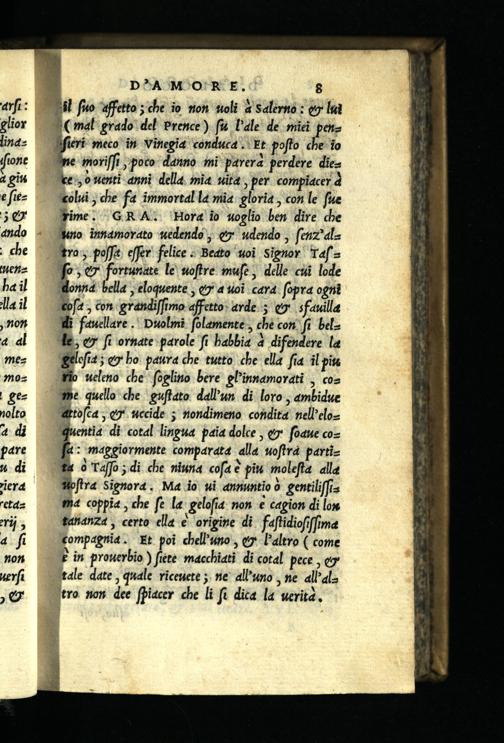 D'AMORE. 8
il suo affetto; che io non uoli à Salerno: & lui
(mal grado del Prence) su l'ale de miei pen=
sieri meco in Vinegia conduca. Et posto che io
ne morissi, poco danno mi parerà perdere die=
ce, ò uenti anni della mia uita, per compiacer à
colui, che fa immortal la mia gloria, con le sue
rime. GRA. Hora io uoglio ben dire che
uno innamorato uedendo, & udendo, senz'al=
tro, possa esser felice. Beato uoi Signor Tas=
so, & fortunate le uostre muse, delle cui lode
donna bella, eloquente, & a uoi cara sopra ogni
cosa, con grandissimo affetto arde; & sfauilla
di fauellare. Duolmi solamente, che con si bel=
le, & si ornate parole si habbia à difendere la
gelosia; & ho paura che tutto che ella sia il piu
rio ueleno che soglino bere gl'innamorati, co=
me quello che gustato dall'un di loro, ambidue
attosca, & uccide; nondimeno condita nell'elo=
quentia di cotal lingua paia dolce, & soaue co=
sa: maggiormente comparata alla uostra parti=
ta ò Tasso; di che niuna cosa è piu molesta alla
uostra Signora. Ma io ui annuntio ò gentilissi=
ma coppia, che se la gelosia non è cagion di lon
tananza, certo ella è origine di fastidiosissima
compagnia. Et poi chell'uno, & l'altro (come
è in prouerbio) siete macchiati di cotal pece, &
tale date, quale riceuete; ne all'uno, ne all'al=
tro non dee spiacer che li si dica la uerità.
arsi:
glior
dina=
usione
à giu
e sie=
; &
ando
che
tuen=
ha il
ella il
, non
a al
me=
mo=
ge=
molto
sa di
pare
u di
giera
reta=
erij,
a si
non
uersi
, &